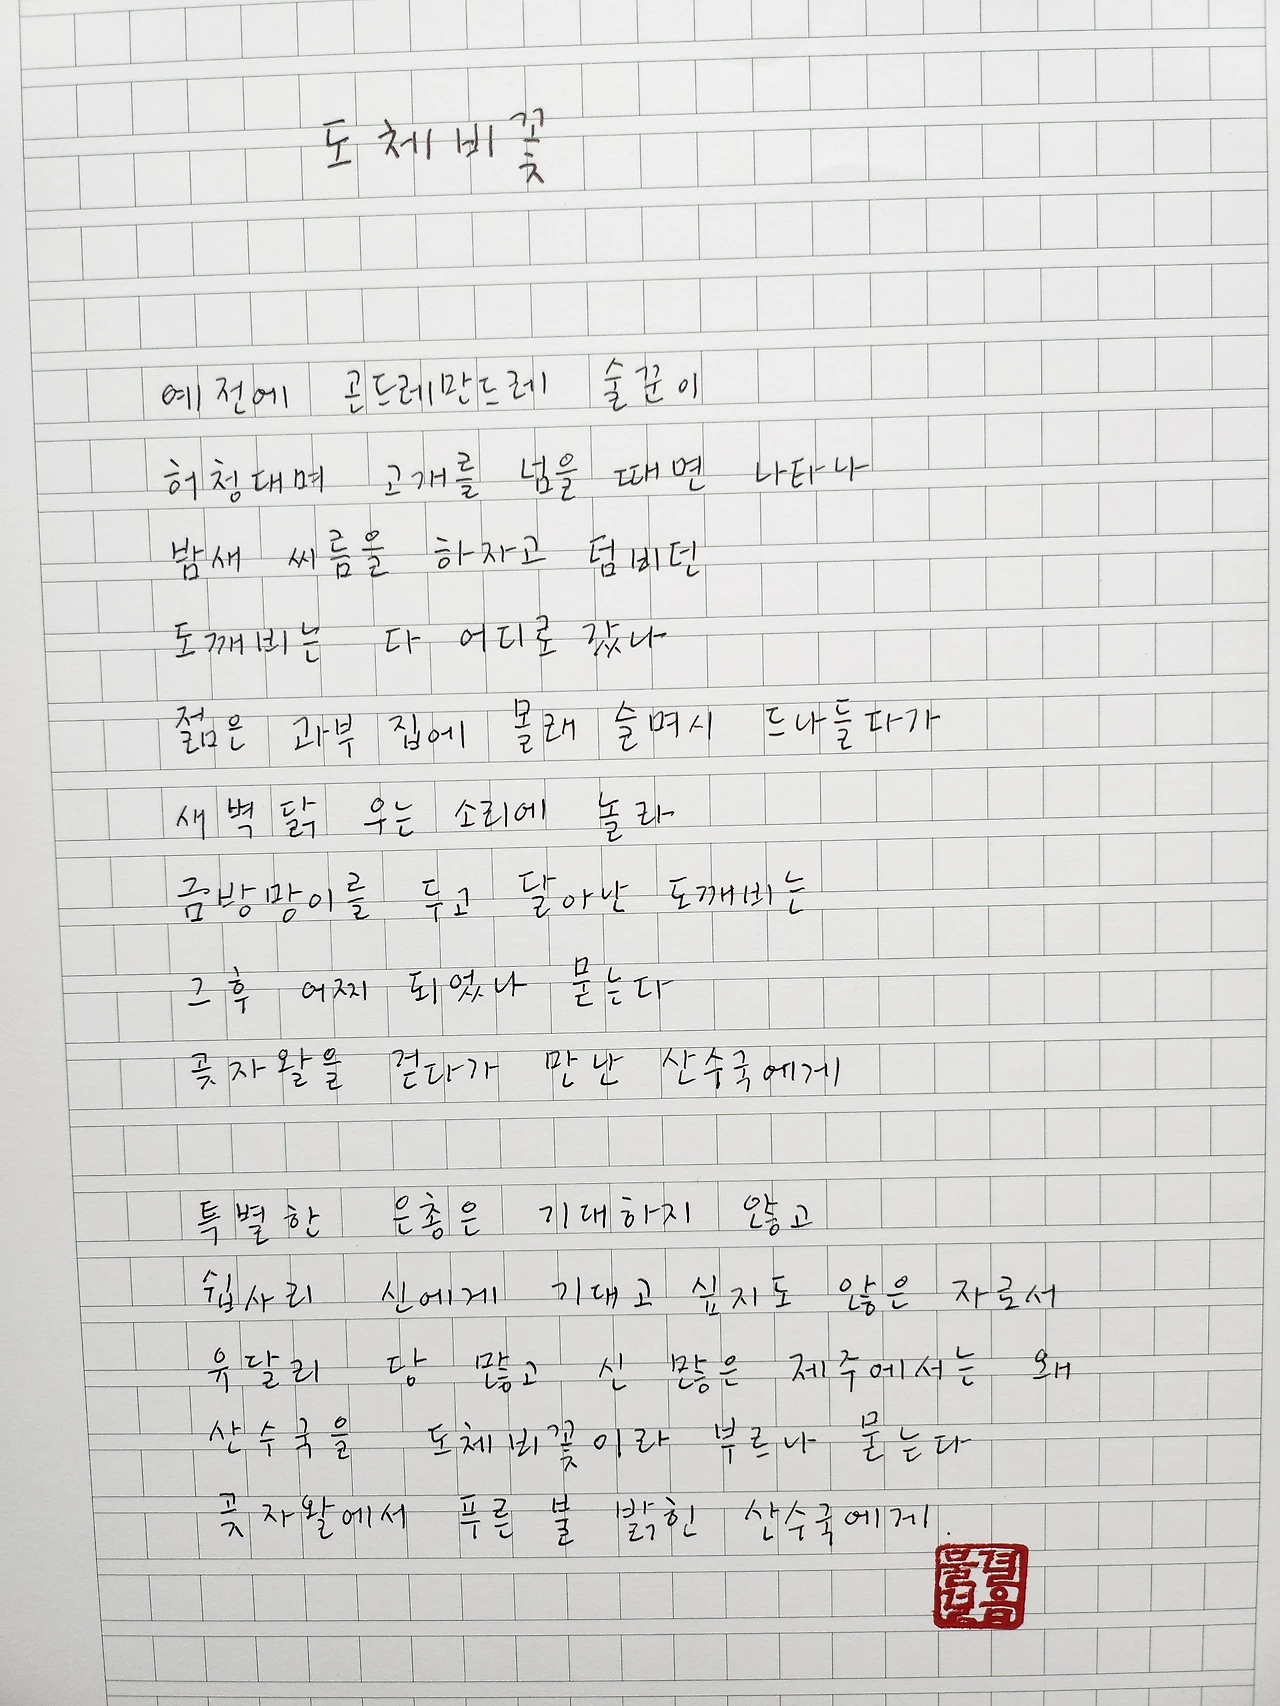 도체비꽃
예전에 곤드레만드레 술꾼이
허청대며 고개를 넘을 때면 나타나
밤새 씨름을 하자고 덤비던
도깨비는 다 어디로 갔나
젊은 과부 집에 몰래 슬며시 드나들다가
새벽 닭 우는 소리에 놀라
금방망이를 두고 달아난 도깨비는
그후 어찌 되었나 묻는다
곶자왈을 걷다가 만난 산수국에게
특별한 은총은 기대하지 않고
쉽사리 신에게 기대고 싶지도 않은 자로서
유달리 당 많고 신 많은 제주에서는 왜
산수국을 도체비꽃이라 부르나 묻는다
곶자왈에서 푸른 불 밝힌 산수국에게.